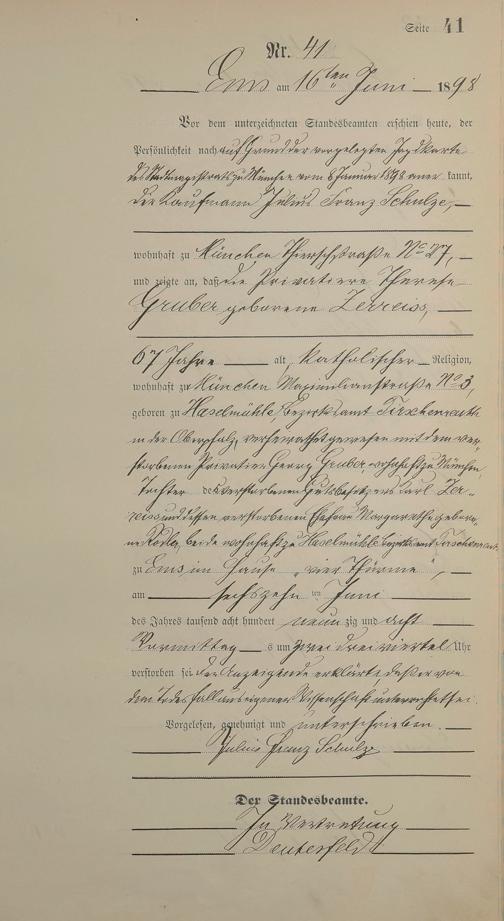 Seite 41
Nr. 41
Ems am 16ten Juni 1898
Vor dem unterzeichneten Standesbeamten erschien heute, der
Persönlichkeit nach auf Grund der vorgelegten Jagdkarte
des Stadtmagistrats zu München vom 8 Januar 1898 aner kannt,
der Kaufmann Julius Franz Schulze,
wohnhaft zu München, Thierschstraße No 27,
und zeigte an, daß die Privatiere Therese
Gruber geborene Zerreiss,
67 Jahre alt, katholischer Religion,
wohnhaft zu München Maximilianstraße No 3,
geboren zu Haselmühle, Bezirksamt Tirschenreuth
in der Oberpfalz, verheirathet gewesen mit dem ver-
storbenen Privatier Georg Gruber wohnhaft zu München,
Tochter des verstorbenen Gutsbesitzers Karl Zer-
reiss und dessen verstorbenen Ehefrau Margarethe gebore-
ne beide wohnhaft zu Haselmühle Bezirksamt Tirschenreuth
zu Ems im Hause "vier Thürme",
am sechszehn ten Juni
des Jahres tausend acht hundert neun zig und acht
Vormittag s um zwei dreiviertel Uhr
verstorben sei der Anzeigende erklärte, daß er von
dem Todesfall aus eigener Wissenschaft unterrichtet sei.
Vorgelesen, genehmigt und unterschrieben.
Julius Franz Schulze
Der Standesbeamte.
In Vertretung